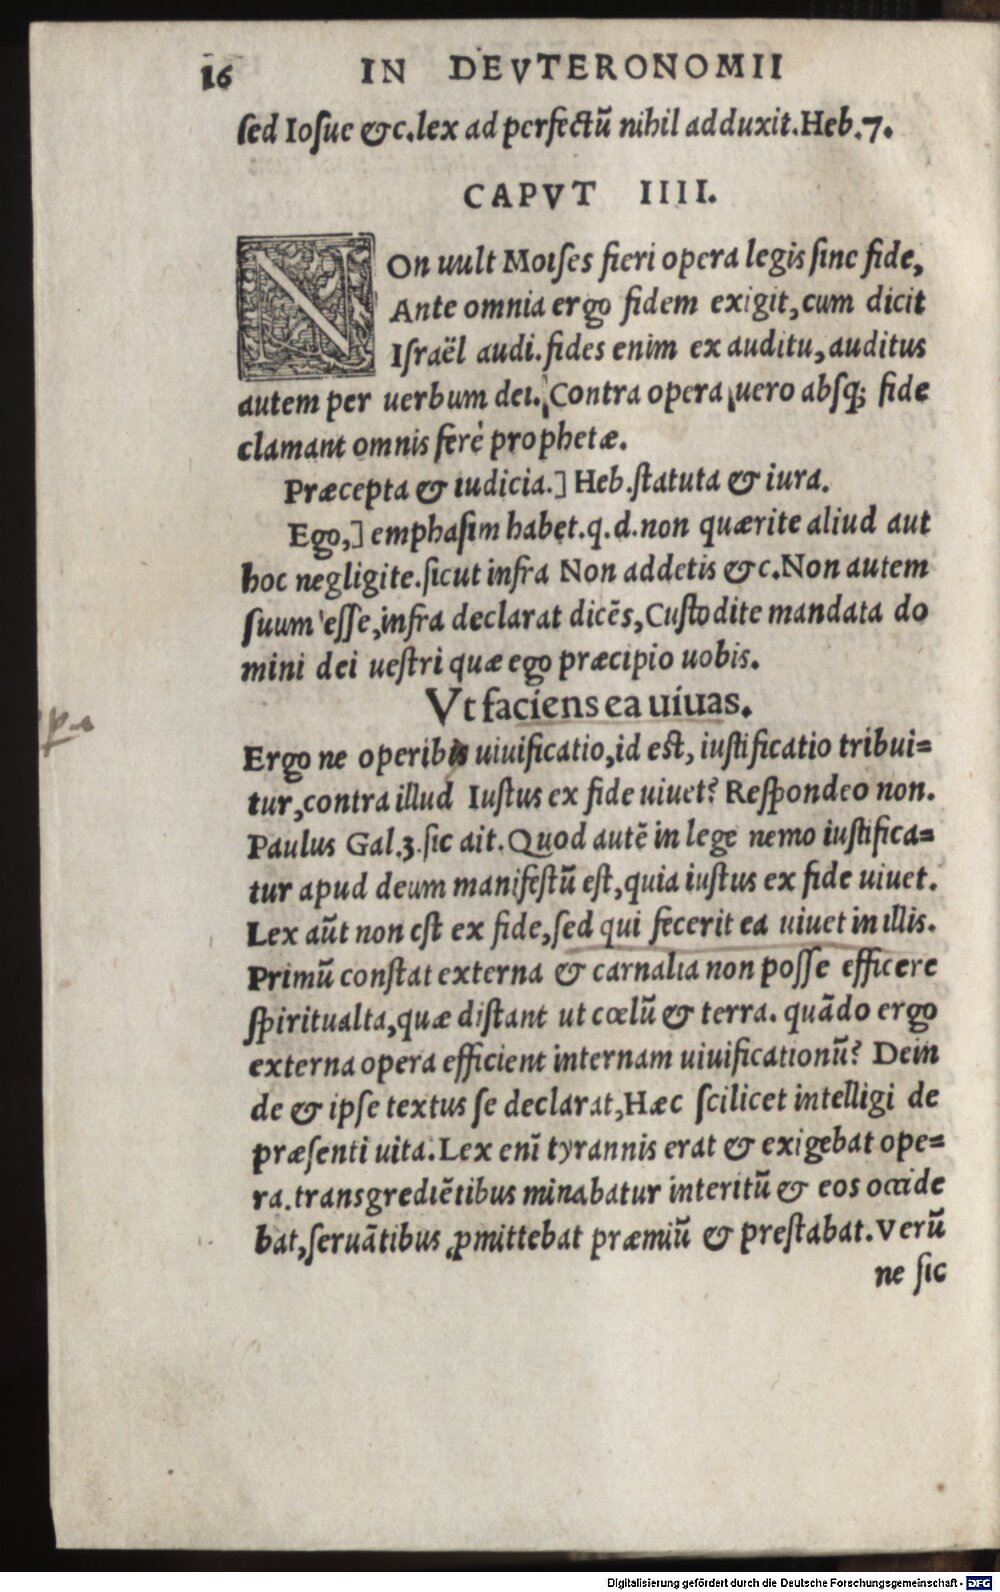 16 IN DEVTERONOMII
sed Iosue &c. lex ad perfectū nihil adduxit. Heb. 7.
CAPVT IIII.
NOn uult Moises fieri opera legis sine fide,
Ante omnia ergo fidem exigit, cum dicit
Israël audi. fides enim ex auditu, auditus
autem per uerbum dei. Contra opera uero absq; fide
clamant omnis ferè prophetæ.
Præcepta & iudicia.] Heb. statuta & iura.
Ego,] emphasim habet. q. d. non quærite aliud aut
hoc negligite. sicut infra Non addetis &c. Non autem
suum esse, infra declarat dicēs, Custodite mandata do
mini dei uestri quæ ego præcipio uobis.
Vt faciens ea uiuas.
Ergo ne operibis uiuificatio, id est, iustificatio tribui=
tur, contra illud Iustus ex fide uiuet? Respondeo non.
Paulus Gal. 3. sic ait. Quod autē in lege nemo iustifica=
tur apud deum manifestū est, quia iustus ex fide uiuet.
Lex aūt non est ex fide, sed qui fecerit ea uiuet in illis.
Primū constat externa & carnalia non posse efficere
spiritualia, quæ distant ut cœlū & terra. quādo ergo
externa opera efficient internam uiuificationū? Dein
de & ipse textus se declarat, Hæc scilicet intelligi de
præsenti uita. Lex enī tyrannis erat & exigebat ope=
ra. transgrediētibus minabatur interitū & eos occide
bat, seruātibus ꝓmittebat præmiū & prestabat. Verū
ne sic
Digitalisierung gefördert durch die Deutsche Forschungsgemeinschaft - DFG